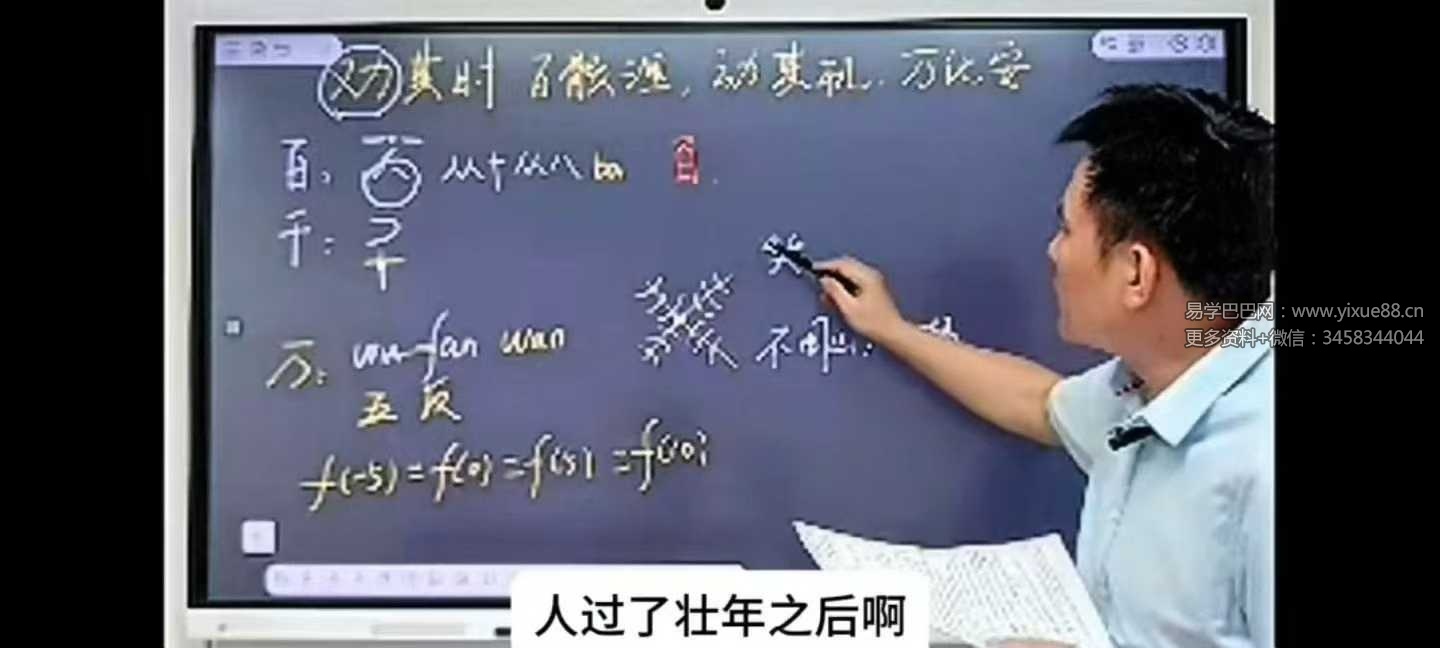 劝其时 百骸理，动其机，万化安
百： 从十从八 ba
千：
万： wu-fan wan
五 反
笑
f(-5)=f(0)=f(5)=f(10)
易学巴巴网：www.yixue88.cn
更多资料+微信：3458344044
人过了壮年之后啊